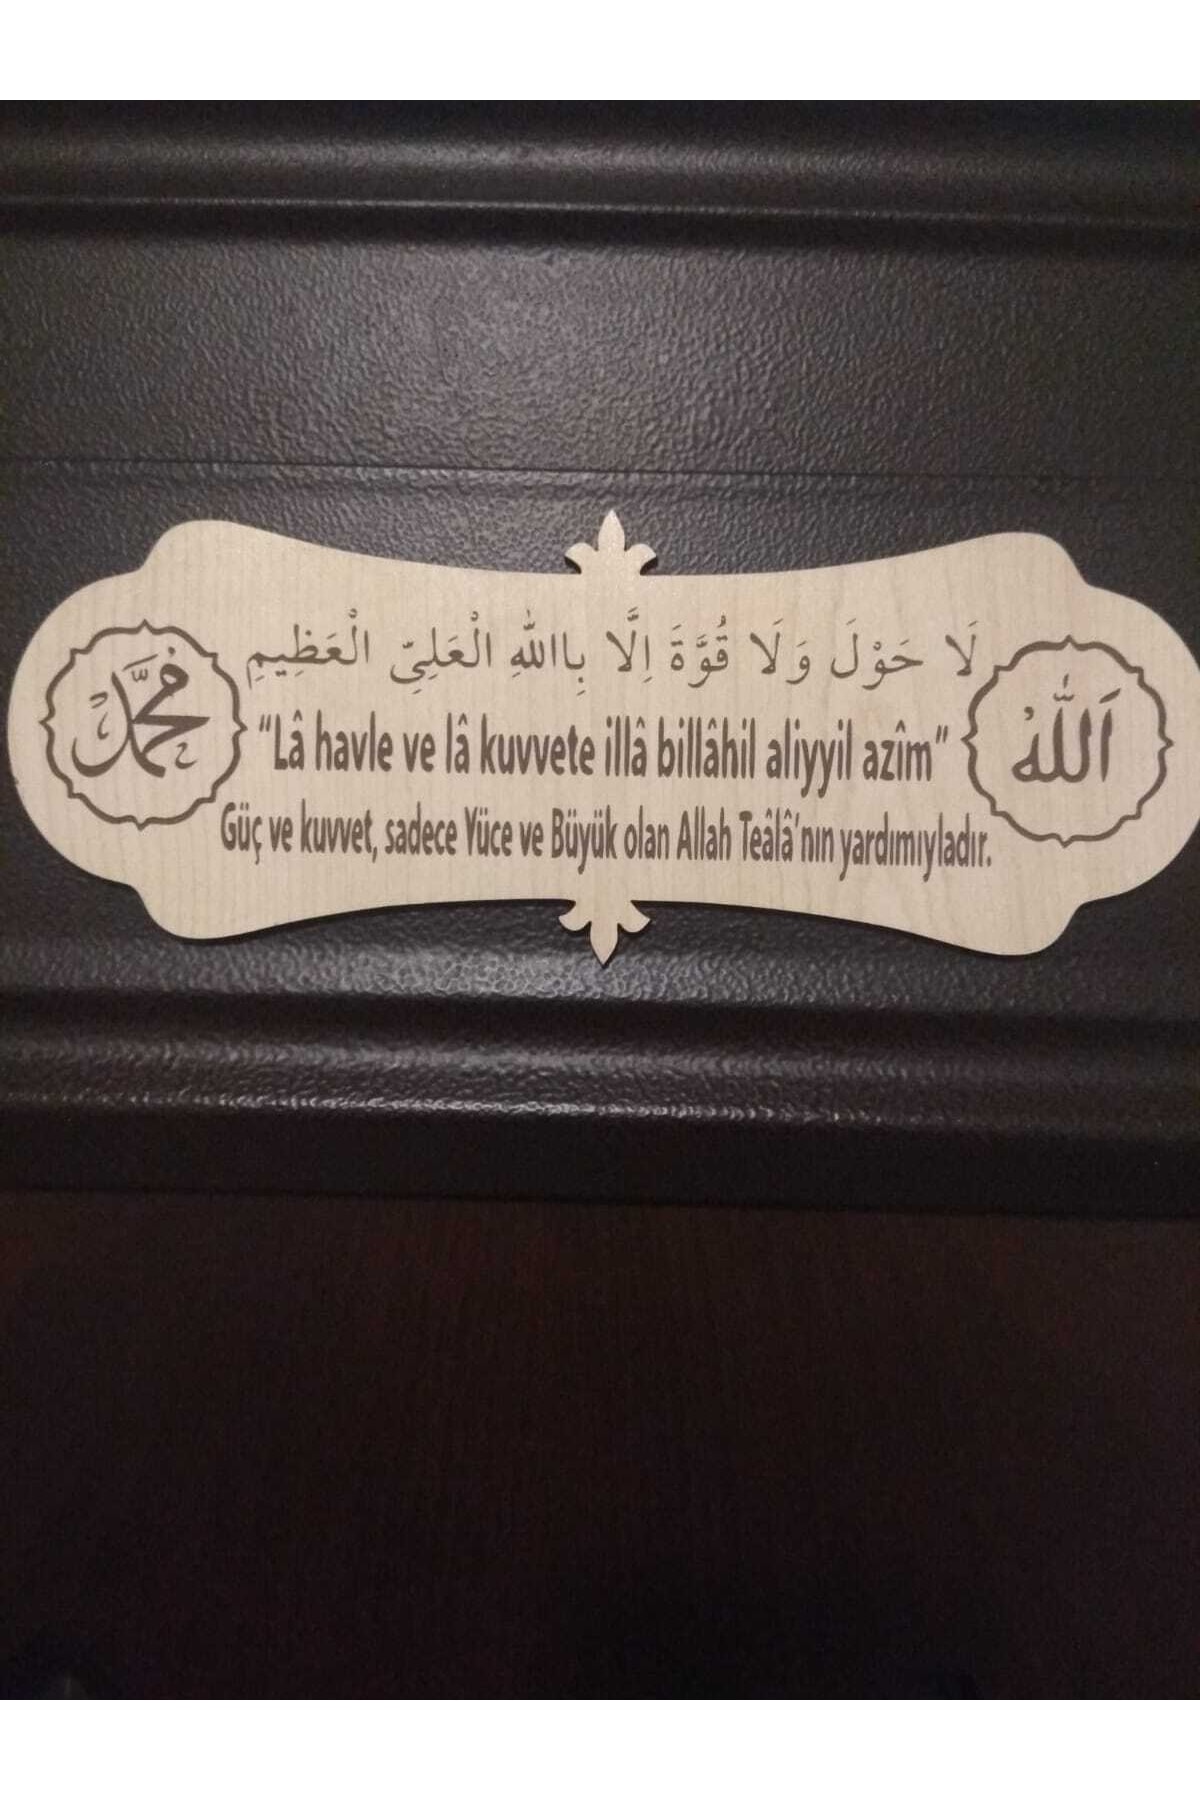 الله
لَا حَوْلَ وَلَا قُوَّةَ اِلَّا بِاللهِ الْعَلِىِّ الْعَظِيمِ
محمد
“Lâ havle ve lâ kuvvete illâ billâhil aliyyil azîm”
Güç ve kuvvet, sadece Yüce ve Büyük olan Allah Teâlâ’nın yardımıyladır.